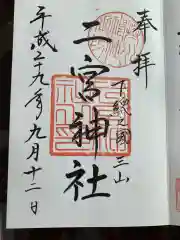 奉拝
下総之國三山
二宮神社
平成二十九年九月十二日